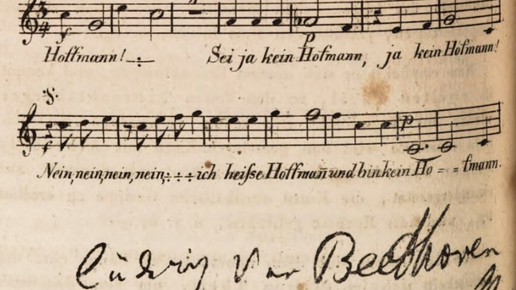 Hoffmann! Sei ja kein Hofmann, ja kein Hofmann!
S.
Nein, nein, nein, nein, ich heiße Hoffmann und bin kein Ho==fmann.
Ludwig Van Beethoven